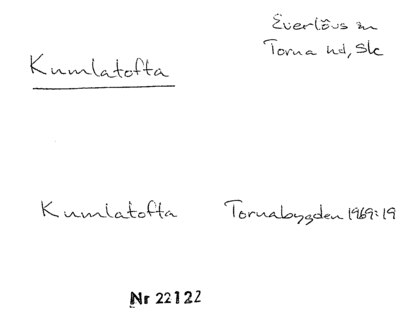 Everlövs sn
Torna hd, Sk
Kumlatofta
Kumlatofta Tornabygden 1969:19
Nr 22122